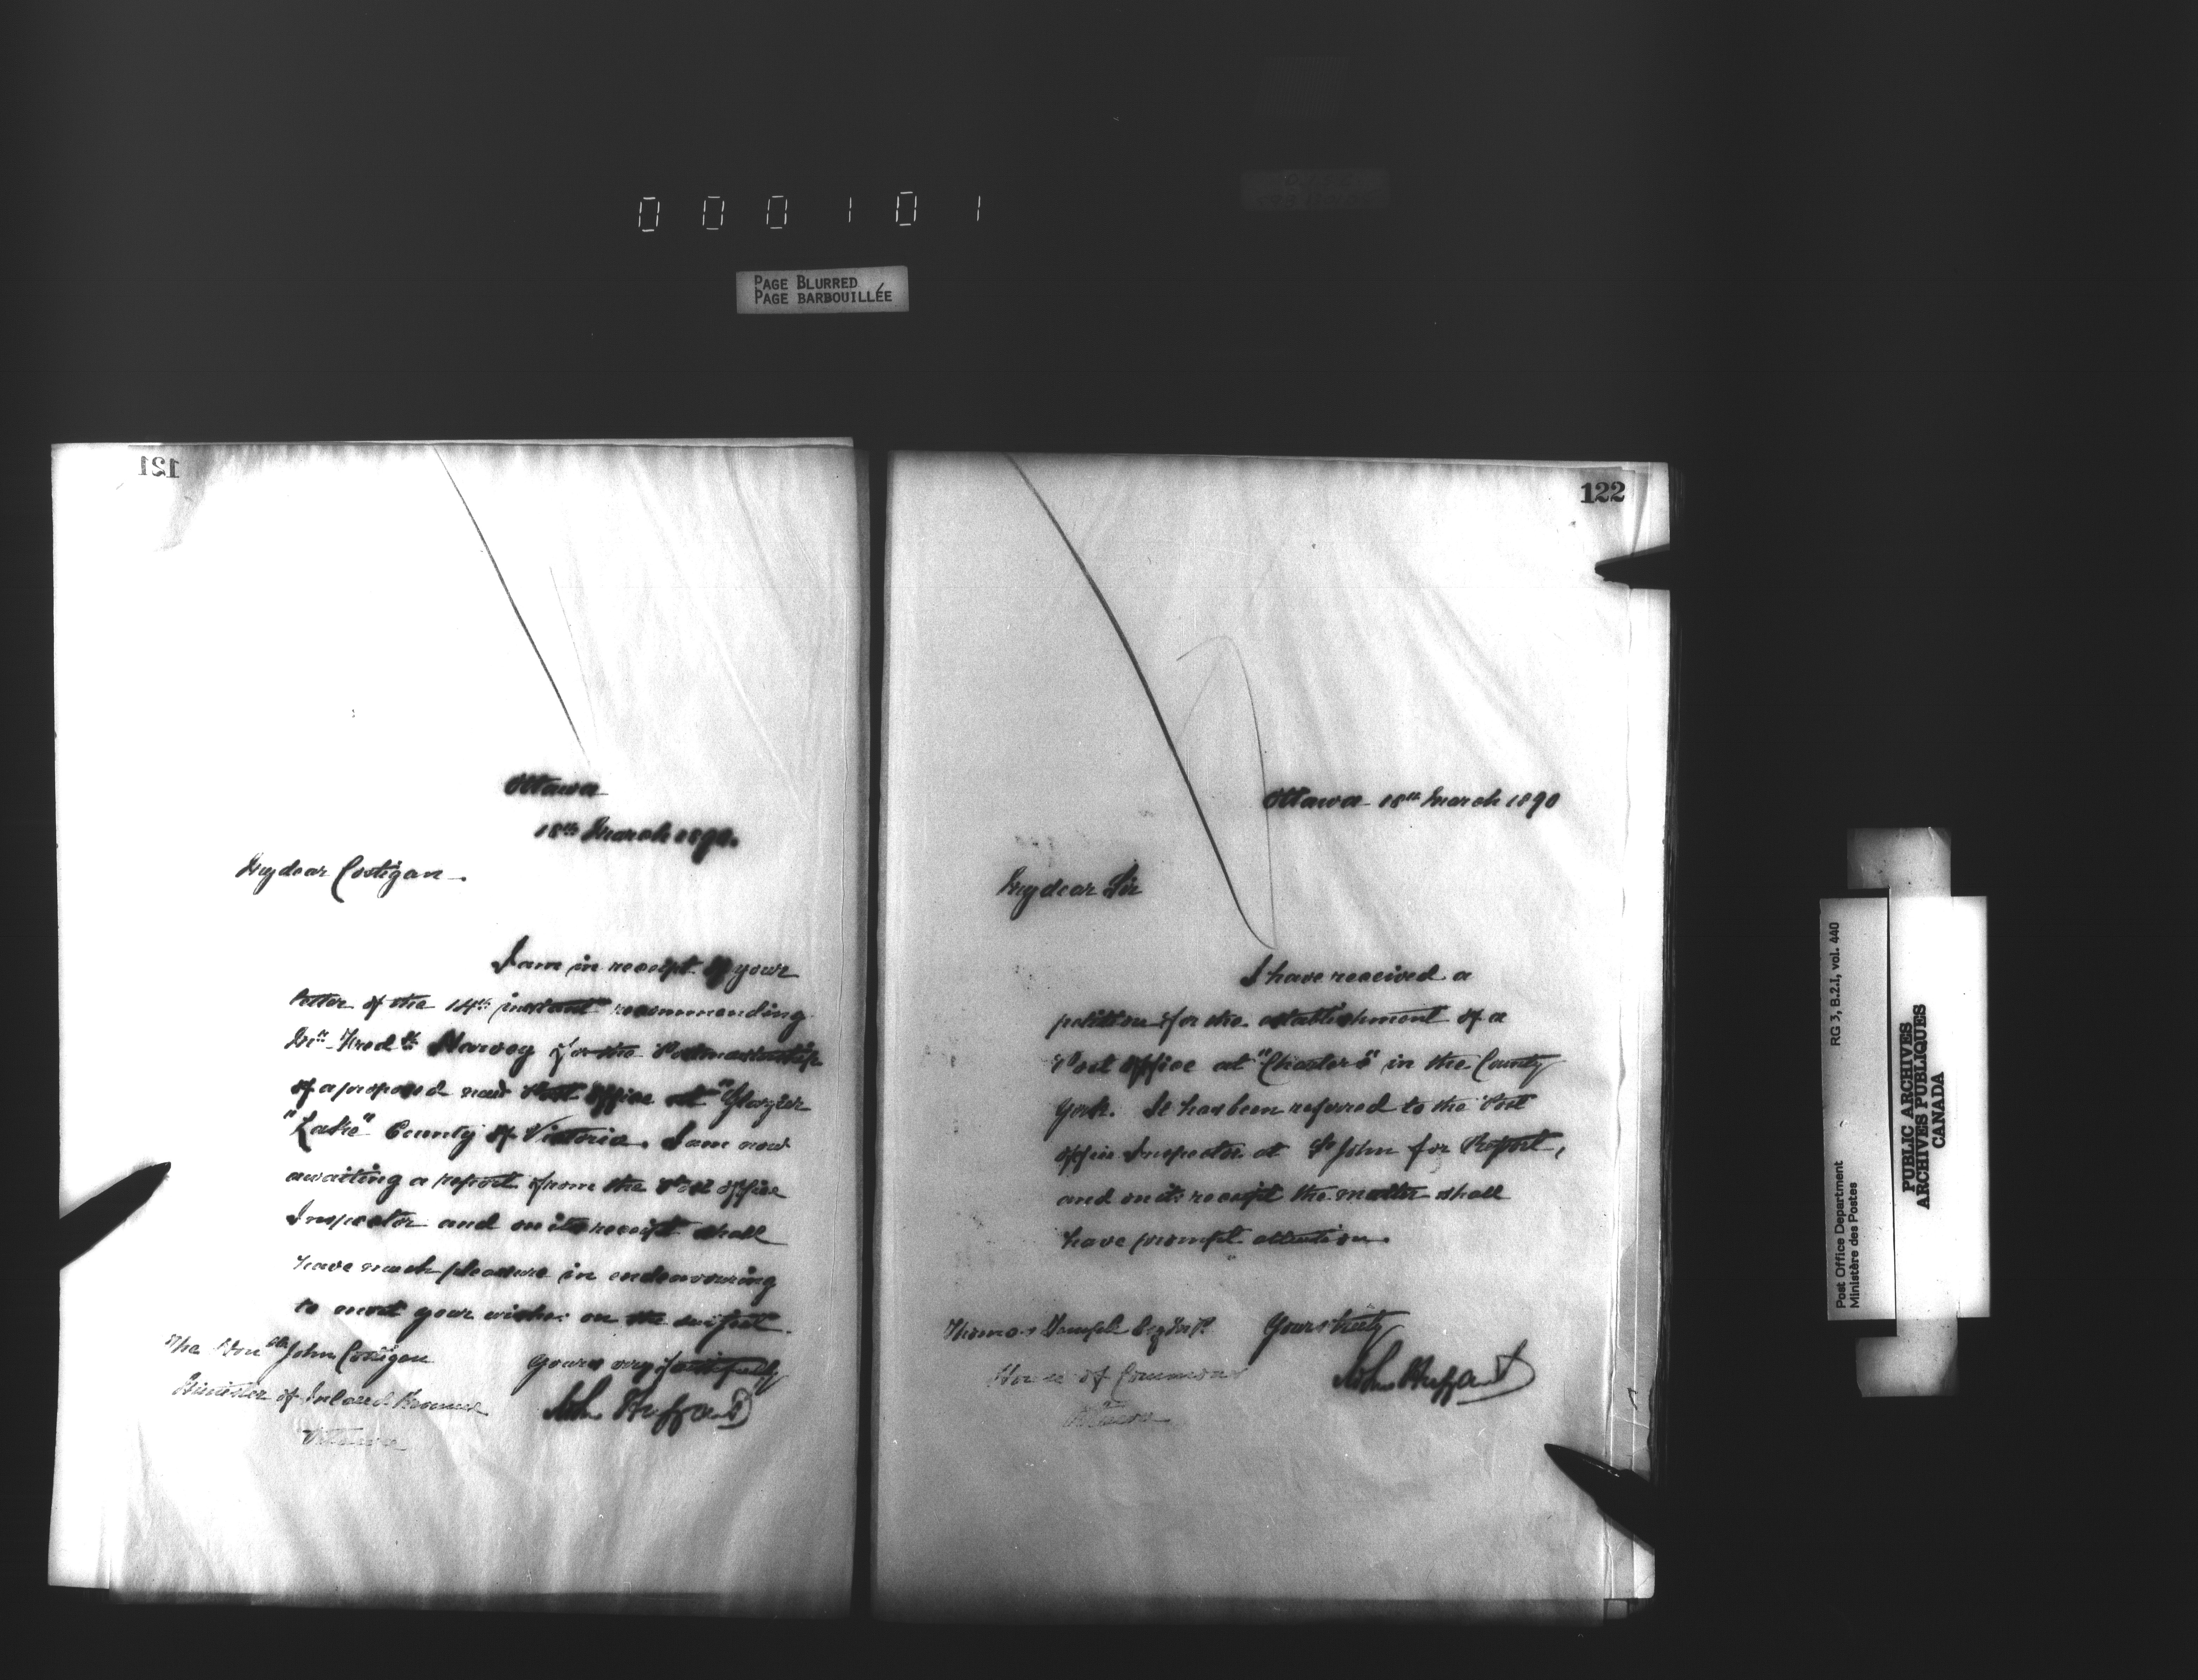 000101
PAGE BLURRED
PAGE BARBOUILLÉE
121
Ottawa
18th March 1890.
My dear Costigan.
I am in receipt of your
letter of the 14th instant recommending
Mr. Fredk Harvey for the Postmastership
of a proposed new Post Office at "Glazier
"Lake" County of Victoria. I am now
awaiting a report from the Post Office
Inspector and on its receipt shall
have much pleasure in endeavouring
to meet your wishes on the subject.
Yours very faithfully
John Haggart
The Honble John Costigan
Minister of Inland Revenue
Ottawa
122
Ottawa 18th March 1890
My dear Sir
I have received a
petition for the establishment of a
Post Office at "Charters" in the County
York. It has been referred to the Post
Office Inspector at St John for Report,
and on its receipt the matter shall
have prompt attention.
Yours truly
John Haggart
Thomas Temple Esq M.P.
House of Commons
Ottawa
Post Office Department
Ministère des Postes
RG 3, B.2.I, vol. 440
PUBLIC ARCHIVES
ARCHIVES PUBLIQUES
CANADA